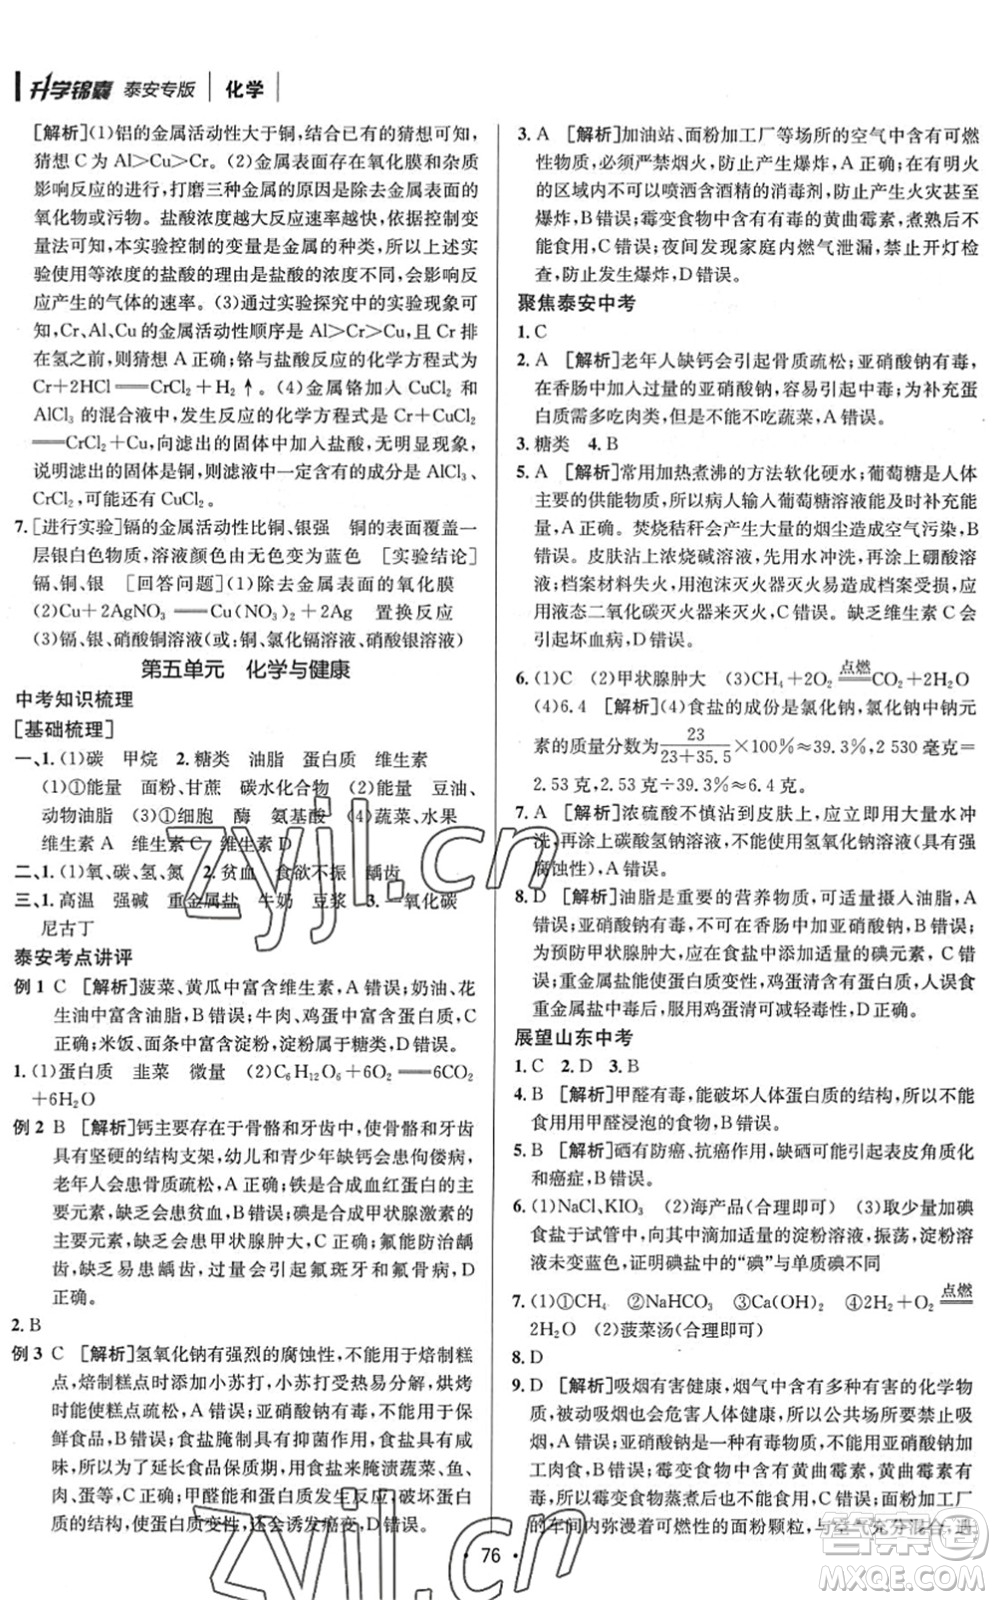 升学锦囊 泰安专版 化学
[解析](1)铝的金属活动性大于铜,结合已有的猜想可知,
猜想 C 为 Al>Cu>Cr。(2)金属表面存在氧化膜和杂质会
影响反应的进行,打磨三种金属的原因是除去金属表面的
氧化物或污物。盐酸浓度越大反应速率越快,依据控制变
量法可知,本实验控制的变量是金属的种类,所以上述实
验使用等浓度的盐酸的理由是盐酸的浓度不同,会影响反
应产生的气体的速率。(3)通过实验探究中的实验现象可
知,Cr、Al、Cu 的金属活动性顺序是 Al>Cr>Cu,且 Cr 排
在氢之前,则猜想 A 正确;铬与盐酸反应的化学方程式为
Cr+2HCl══CrCl₂+H₂↑。(4)金属铬加入 CuCl₂ 和
AlCl₃ 的混合液中,发生反应的化学方程式是 Cr+CuCl₂
══CrCl₂+Cu,向滤出的固体中加入盐酸,无明显现象,
说明滤出的固体是铜,则滤液中一定含有的成分是 AlCl₃、
CrCl₂,可能还有 CuCl₂。
7.[进行实验]镉的金属活动性比铜、银强 铜的表面覆盖一
层银白色物质,溶液颜色由无色变为蓝色 [实验结论]
镉、铜、银 [回答问题](1)除去金属表面的氧化膜
(2)Cu+2AgNO₃══Cu(NO₃)₂+2Ag 置换反应
(3)镉、银、硝酸铜溶液(或:铜、氯化镉溶液、硝酸银溶液)
第五单元 化学与健康
中考知识梳理
[基础梳理]
一、1.(1)碳 甲烷 2.糖类 油脂 蛋白质 维生素
(1)①能量 面粉、甘蔗 碳水化合物 (2)能量 豆油、
动物油脂 (3)①细胞 酶 氨基酸 (4)蔬菜、水果
维生素 A 维生素 C 维生素 D
二、1.(1)氧、碳、氢、氮 2.贫血 食欲不振 龋齿
三、1.高温 强碱 重金属盐 牛奶 豆浆 3.一氧化碳
尼古丁
泰安考点讲评
例 1 C [解析]菠菜、黄瓜中富含维生素,A 错误;奶油、花
生油中富含油脂,B 错误;牛肉、鸡蛋中富含蛋白质,C
正确;米饭、面条中富含淀粉,淀粉属于糖类,D 错误。
1.(1)蛋白质 韭菜 葡萄糖 (2)C₆H₁₂O₆+6O₂══6CO₂
+6H₂O
例 2 B [解析]钙主要存在于骨骼和牙齿中,使骨骼和牙齿
具有坚硬的结构支架,幼儿和青少年缺钙会患佝偻病,
老年人会患骨质疏松,A 错误;铁是合成血红蛋白的主要
元素,缺乏会患贫血,B 错误;碘是合成甲状腺激素的主
要元素,缺乏会患甲状腺肿大,C 错误;氟能防治龋
齿,缺乏会患龋齿,过量会引起氟斑牙和氟骨病,D
正确。
2.B
例 3 C [解析]氢氧化钠有强烈的腐蚀性,不能用于焙制糕
点,焙制糕点时应该加小苏打,小苏打受热易分解,烘烤
时能使糕点疏松,A 错误;亚硝酸钠有毒,不能用于
保鲜食品,B 错误;食盐腌制具有抑菌作用,具有咸
味,所以为了延长食品保质期,可用食盐来腌渍蔬菜、鱼、
肉、蛋等,C 正确;甲醛能和蛋白质发生反应,破坏蛋白
质的结构,使蛋白质变性,还会诱发癌变,D 错误。
3.A [解析]加油站、面粉加工厂等场所的空气中含有可燃
性物质,必须严禁烟火,防止产生爆炸,A 正确;在有明火
的区域内不可以喷洒含酒精的消毒剂,防止产生火灾甚至
爆炸,B 错误;霉变食物中含有有毒的黄曲霉素,煮熟后不
能食用,C 错误;夜间发现家庭内燃气泄漏,禁止开灯检
查,防止发生爆炸,D 错误。
聚焦泰安中考
1.C
2.A [解析]老年人缺钙会引起骨质疏松;亚硝酸钠有毒,
在香肠中加入过量的亚硝酸钠,容易引起中毒;为补充蛋
白质需多吃肉类,但是不能不吃蔬菜,A 错误。
3.糖类 4.B
5.A [解析]常用加热煮沸的方法软化硬水;葡萄糖是人体
主要的供能物质,所以病人输入葡萄糖溶液能及时补充能
量,A 正确。焚烧秸秆会产生大量的烟尘造成空气污染,B
错误。皮肤沾上浓烧碱溶液,先用水冲洗,再涂上硼酸溶
液;档案材料失火,用泡沫灭火器灭火易造成档案受损,应
用液态二氧化碳灭火器来灭火,C 错误。缺乏维生素 C 会
引起坏血病,D 错误。
6.(1)C (2)甲状腺肿大 (3)CH₄+2O₂ 点燃══ CO₂+2H₂O
(4)6.4 [解析](4)食盐的成份是氯化钠,氯化钠中钠元
素的质量分数为 23/(23+35.5)×100%≈39.3%,2 530 毫克=
2.53 克,2.53 克÷39.3%≈6.4 克。
7.A [解析]浓硫酸不慎沾到皮肤上,应用大量的水冲
洗,再涂上碳酸氢钠溶液,不能使用氢氧化钠溶液(具有强
腐蚀性),A 错误。
8.D [解析]油脂是重要的营养物质,可适量摄入油脂,A
错误;亚硝酸钠有毒,不可以在香肠中添加亚硝酸钠,B 错误;
为预防甲状腺肿大,应在食盐中添加适量的碘元素,C 错
误;重金属盐能使蛋白质变性,鸡蛋清富含蛋白质,误食
重金属盐中毒时,服用鸡蛋清可减轻毒性,D 正确。
展望山东中考
1.C 2.D 3.B
4.B [解析]甲醛有毒,能破坏人体蛋白质的结构,所以不能
食用用甲醛浸泡的食物,B 错误。
5.B [解析]硒有防癌、抗癌作用,缺硒可能引起表皮角质化
和癌症,B 错误。
6.(1)NaCl、KIO₃ (2)海产品(合理即可) (3)取少量加碘
食盐于试管中,向其中滴加适量的淀粉溶液,振荡,淀粉溶
液未变蓝色,证明碘盐中的“碘”与单质碘不同
7.(1)①CH₄ ②NaHCO₃ ③Ca(OH)₂ ④2H₂+O₂ 点燃══
2H₂O (2)菠菜汤(合理即可)
8.D
9.D [解析]吸烟有害健康,烟气中含有多种有害的化学物
质,被动吸烟也会危害人体健康,所以公共场所要禁止吸
烟,A 错误;亚硝酸钠是一种有毒物质,不能用亚硝酸钠加
工肉食,B 错误;霉变食物中含有黄曲霉素,黄曲霉素耐高
温,所以霉变食物蒸煮后也不能食用,C 错误;面粉加工厂
的车间内弥漫着可燃性的面粉颗粒,与空气充分混合,遇
·76·
zyjl.cn
zyjl.cn
答案圈
MXQE.COM